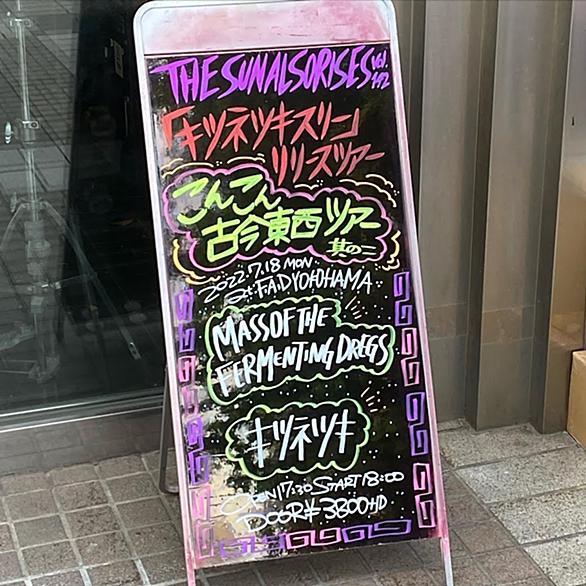 THE SUN ALSO RISES vol.142
「キツネツキスリー」
リリースツアー
こんこん
古今東西ツアー
其の二
2022.7.18 MON
at F.A.D YOKOHAMA
MASS OF THE
FERMENTING DREGS
キツネツキ
OPEN 17:30 START 18:00
DOOR ¥3800+1D